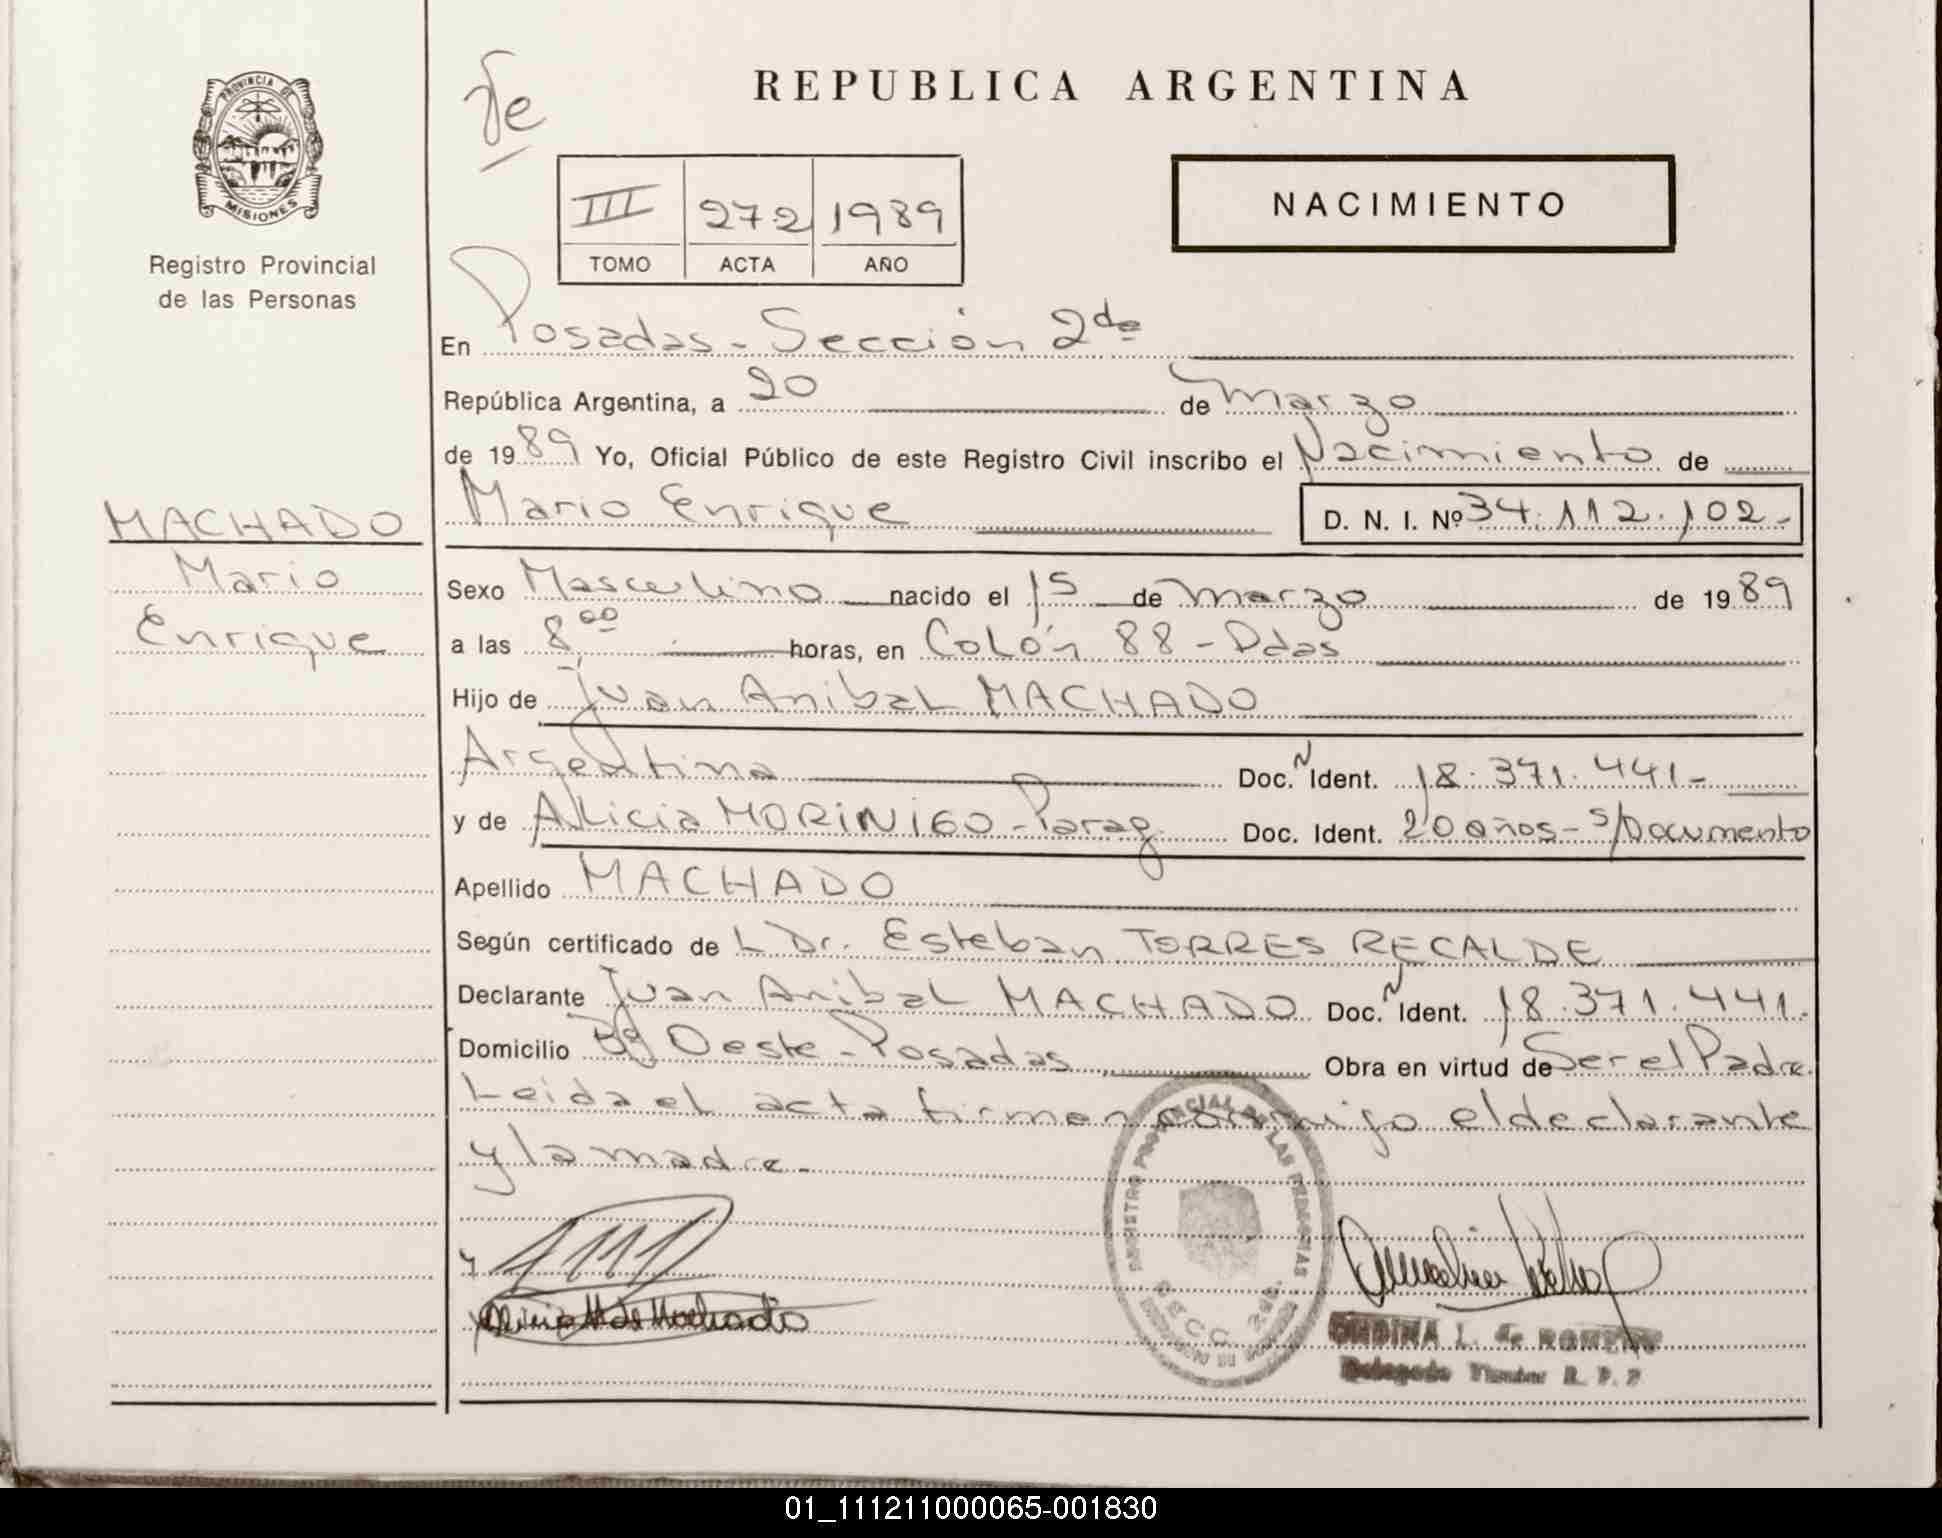 REPUBLICA ARGENTINA
PROVINCIA DE
MISIONES
Registro Provincial
de las Personas
NACIMIENTO
III 272 1989
TOMO ACTA AÑO
En Posadas - Sección 2da
República Argentina, a 20 de Marzo
de 1989 Yo, Oficial Público de este Registro Civil inscribo el Nacimiento de
Mario Enrique D. N. I. Nº 34.112.102-
MACHADO
Mario
Enrique
Sexo Masculino nacido el 15 de Marzo de 1989
a las 8,00 horas, en Colón 88 - Pdas
Hijo de Juan Anibal MACHADO
Argentina Doc. N Ident. 18.371.441-
y de Alicia MORINIGO - Parag. Doc. Ident. 20 años - s/Documento
Apellido MACHADO
Según certificado de L Dr. Esteban TORRES RECALDE
Declarante Juan Anibal MACHADO Doc. N Ident. 18.371.441.
Domicilio Bº Oeste - Posadas Obra en virtud de Ser el Padre.
Leida el acta firman conmigo el declarante
y la madre.
SECC. 2da.
ONDINA L. de ROMERO
Delegado Titular R. P. P
01_111211000065-001830